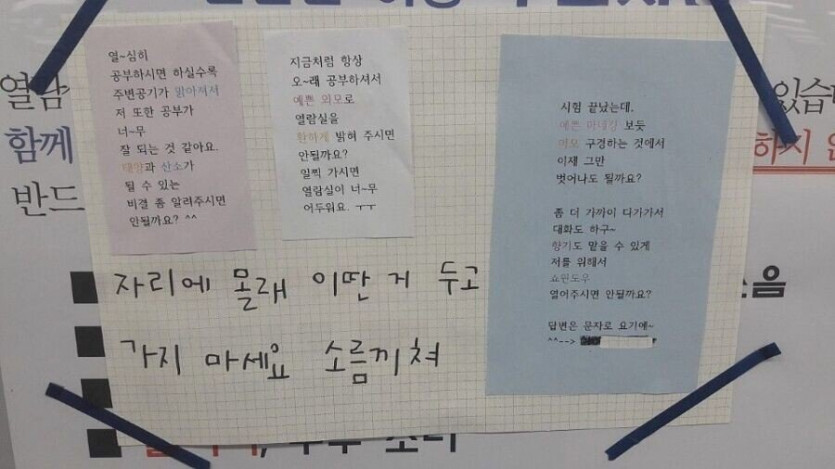 열~심히
공부하시면 하실수록
주변공기가 맑아져서
저 또한 공부가
너~무
잘 되는 것 같아요.
태양과 산소가
될 수 있는
비결 좀 알려주시면
안될까요? ^^
지금처럼 항상
오~래 공부하셔서
예쁜 외모로
열람실을
환하게 밝혀 주시면
안될까요?
일찍 가시면
열람실이 너~무
어두워요. ㅜㅜ
시험 끝났는데,
예쁜 마네킹 보듯
외모 구경하는 것에서
이제 그만
벗어나도 될까요?
좀 더 가까이 다가가서
대화도 하구~
향기도 맡을 수 있게
저를 위해서
쇼윈도우
열어주시면 안될까요?
답변은 문자로 요기에~
^^-->
자리에 몰래 이딴 거 두고
가지 마세요 소름끼쳐
열람
있습니
함께
하지 않
반드
소음
소리